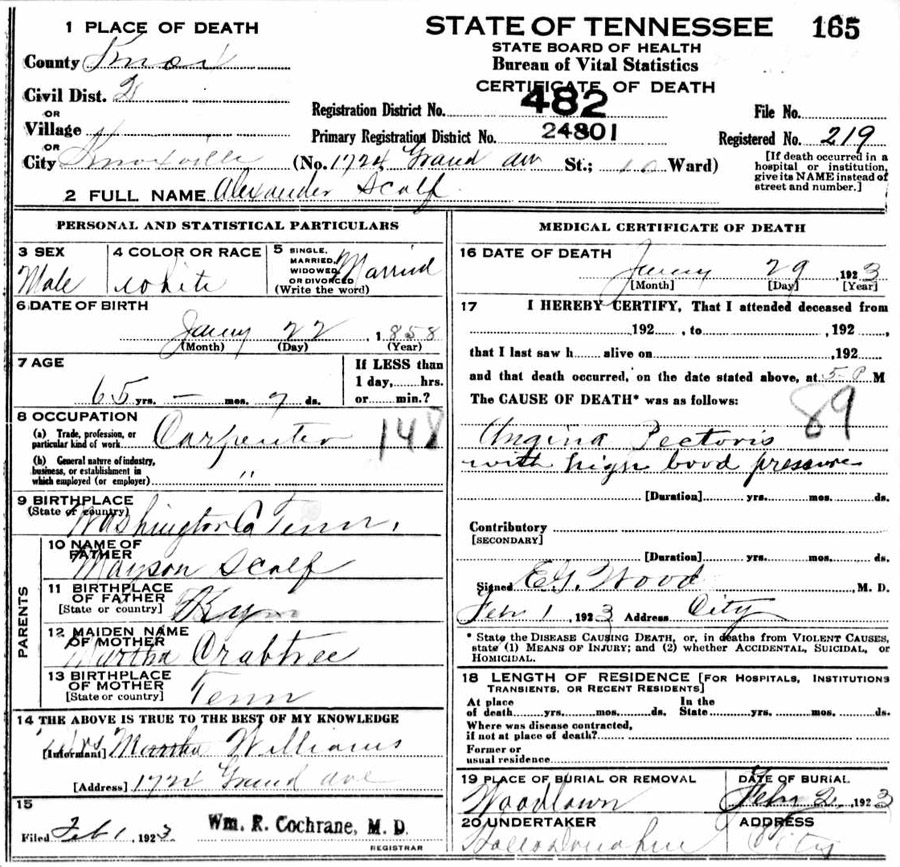 STATE OF TENNESSEE 165
STATE BOARD OF HEALTH
Bureau of Vital Statistics
CERTIFICATE OF DEATH
1 PLACE OF DEATH
County Knox
Civil Dist.
OR
Village
OR
City Knoxville (No. 1724 Grand av St.; 10 Ward)
Registration District No. 482
Primary Registration District No. 24801
File No.
Registered No. 219
[If death occurred in a
hospital or institution,
give its NAME instead of
street and number.]
2 FULL NAME Alexander Scalf
PERSONAL AND STATISTICAL PARTICULARS
3 SEX
Male
4 COLOR OR RACE
white
5 SINGLE,
MARRIED,
WIDOWED
OR DIVORCED
(Write the word)
Married
6 DATE OF BIRTH
Jany 22 1858
(Month) (Day) (Year)
7 AGE
65 yrs. — mos. 7 ds.
If LESS than
1 day, hrs.
or min.?
8 OCCUPATION
(a) Trade, profession, or
particular kind of work Carpenter 148
(b) General nature of industry,
business, or establishment in
which employed (or employer) "
9 BIRTHPLACE
(State or country)
Washington Co Tenn.
PARENTS
10 NAME OF
FATHER
Mayson Scalf
11 BIRTHPLACE
OF FATHER
[State or country]
12 MAIDEN NAME
OF MOTHER
Martha Crabtree
13 BIRTHPLACE
OF MOTHER
[State or country] Tenn
14 THE ABOVE IS TRUE TO THE BEST OF MY KNOWLEDGE
[Informant] Williams
[Address] 1724 Grand ave
15
Filed Feb 1, 1923 Wm. R. Cochrane, M. D.
REGISTRAR
MEDICAL CERTIFICATE OF DEATH
16 DATE OF DEATH
Jany 29 1923
[Month] [Day] [Year]
17 I HEREBY CERTIFY, That I attended deceased from
192 , to 192 ,
that I last saw h alive on 192
and that death occurred, on the date stated above, at 5-P M
The CAUSE OF DEATH* was as follows:
89
Angina Pectoris
with high bood pressure
[Duration] yrs. mos. ds.
Contributory
[SECONDARY]
[Duration] yrs. mos. ds.
Signed E.G. Wood, M. D.
Feb 1, 1923 Address City
* State the DISEASE CAUSING DEATH, or, in deaths from VIOLENT CAUSES,
state (1) MEANS OF INJURY; and (2) whether ACCIDENTAL, SUICIDAL, or
HOMICIDAL.
18 LENGTH OF RESIDENCE [FOR HOSPITALS, INSTITUTIONS
TRANSIENTS, OR RECENT RESIDENTS]
At place In the
of death yrs. mos. ds. State yrs. mos. ds.
Where was disease contracted,
if not at place of death?
Former or
usual residence
19 PLACE OF BURIAL OR REMOVAL
Woodlawn
DATE OF BURIAL
Feby 2, 1923
20 UNDERTAKER
ADDRESS
City